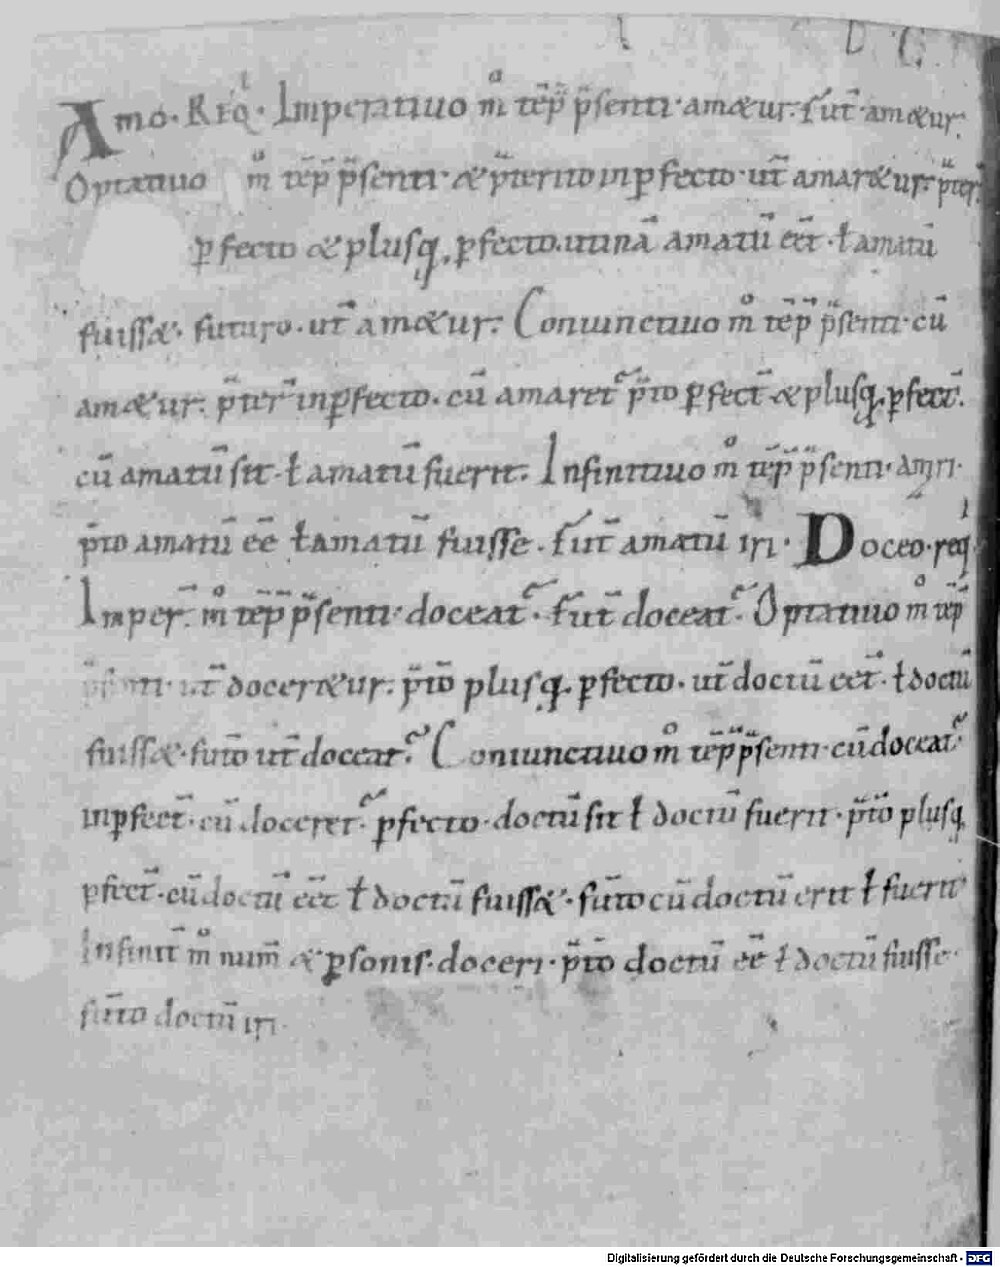 D C
Amo. Req. Imperatiuo m̊ tēp̄ p̄senti. am&ur. fut̄. am&ur.
Optatiuo m̊ tēp̄ p̄senti. & p̄terito inp̱fecto. ut̄ amar&ur. p̄ter̄
p̱fecto & plusq. p̱fecto. utinā amatū eēt. ł amatū
fuiss&. futuro. ut̄ am&ur. Coniunctiuo m̊ tēp̄ p̄senti. cū
am&ur. p̄ter̄ inp̱fecto. cū amaret᷑ p̄to p̱fect̄ & plusq. p̱fect̄.
cū amatū sit. ł amatū fuerit. Infinitiuo m̊ tēp̄ p̄senti. amari.
p̄to amatū eē ł amatū fuisse. fut̄ amatū iri. Doceo. req
Imper̄. m̊ tēp̄ p̄senti. doceat᷑. fut̄ doceat᷑. Optatiuo m̊ tēp̄
p̄senti. ut̄ docer&ur. p̄tō plusq. p̱fecto. ut̄ doctū eēt̄. ł doctū
fuiss&. fut̄o ut̄ doceat᷑. Coniunctiuo m̊ tēp̄ p̄senti. cū doceat᷑
inp̱fect̄. cū doceret᷑. p̱fecto. doctū sit ł doctū fuerit. p̄tō plusq
p̱fect̄. cū doctū eēt ł doctū fuiss&. fut̄o cū doctū erit ł fuerit
Infinit̄ m̊ num̄ & p̱sonis. doceri. p̄tō doctū eē ł doctū fuisse.
fut̄o doctū iri.
Digitalisierung gefördert durch die Deutsche Forschungsgemeinschaft - DFG